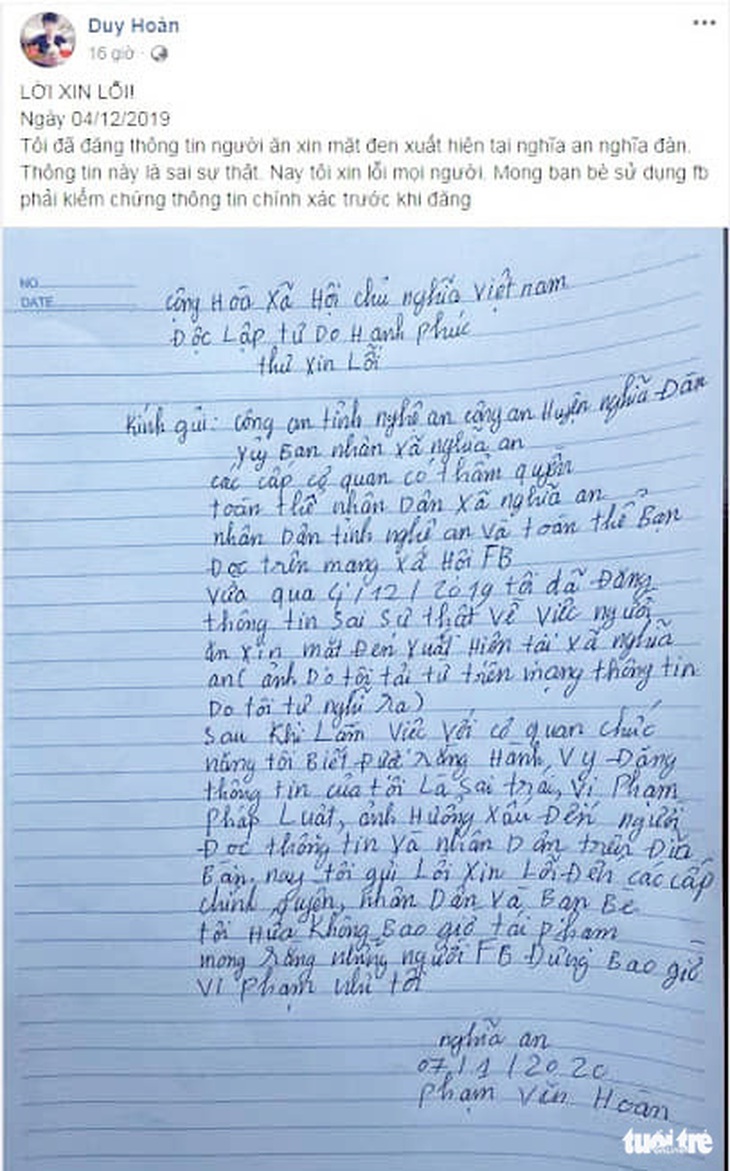 Duy Hoàn
16 giờ
LỜI XIN LỖI!
Ngày 04/12/2019
Tôi đã đăng thông tin người ăn xin mặt đen xuất hiện tại nghĩa an nghĩa đàn.
Thông tin này là sai sự thật. Nay tôi xin lỗi mọi người. Mong bạn bè sử dụng fb
phải kiểm chứng thông tin chính xác trước khi đăng
NO
DATE
cộng Hòa Xã Hội chủ nghĩa Việt nam
Độc Lập tự Do Hạnh phúc
thư xin Lỗi
Kính gửi: công an tỉnh nghệ an công an Huyện nghĩa Đàn
ủy Ban nhân xã nghĩa an
các cấp cơ quan có thẩm quyền
toàn thể nhân Dân xã nghĩa an
nhân Dân tỉnh nghệ an và toàn thể Bạn
Đọc trên mạng xã Hội FB
vừa qua 4/12/2019 tôi đã Đăng
thông tin sai sự thật về việc người
ăn xin mặt Đen xuất Hiện tại xã nghĩa
an( ảnh Do tôi tải từ trên mạng thông tin
Do tôi tự nghĩ ra)
sau Khi Làm việc với cơ quan chức
năng tôi Biết Được rằng Hành Vy Đăng
thông tin của tôi Là sai trái, vi phạm
pháp Luật, ảnh Hưởng xấu Đến người
Đọc thông tin và nhân Dân trên Địa
Bàn. nay tôi gửi Lời xin Lỗi Đến các cấp
chính quyền, nhân Dân và Bạn Bè
tôi Hứa Không Bao giờ tái phạm
mong rằng những người FB Đừng Bao giờ
vi phạm như tôi
nghĩa an
07/1/2020
phạm văn Hoàn
tuổi trẻ
ONLINE